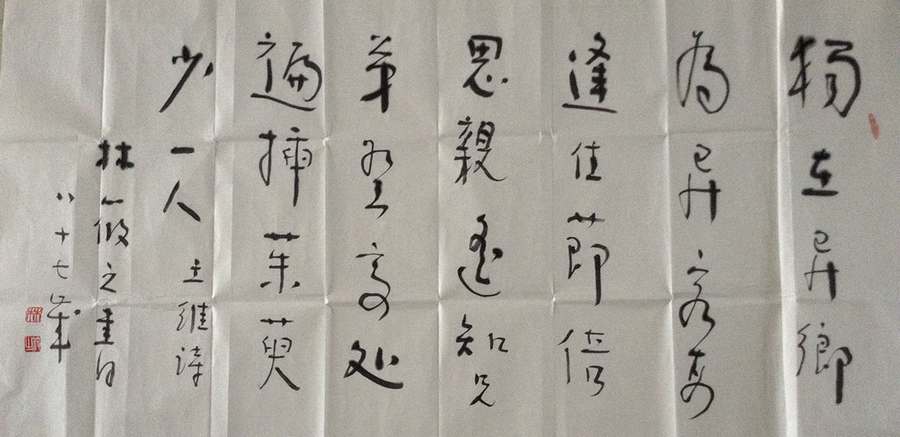 獨在异鄉
為异客每
逢佳節倍
思親遙知兄
弟登高处
遍插茱萸
少一人 王維詩
林筱之書
八十七歲